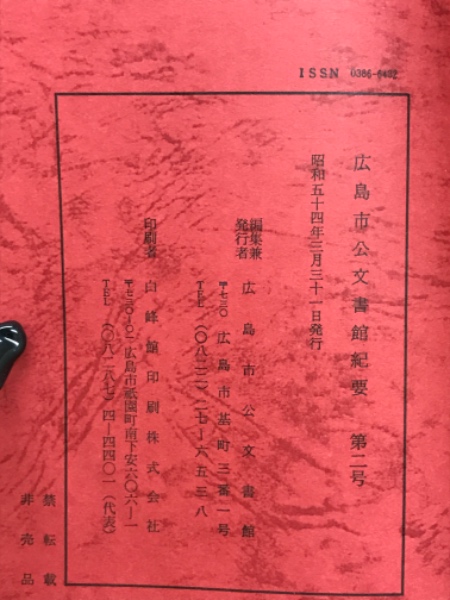 ISSN 0386-6432
広島市公文書館紀要 第二号
昭和五十四年三月三十一日発行
編集兼
発行者 広島市公文書館
〒七三〇 広島市基町三番一号
TEL (〇八二二)二七―六五三八
印刷者 白峰館印刷株式会社
広島市祇園町南下安六〇六―一
TEL 四―四四〇一(代表)
禁転載
非売品